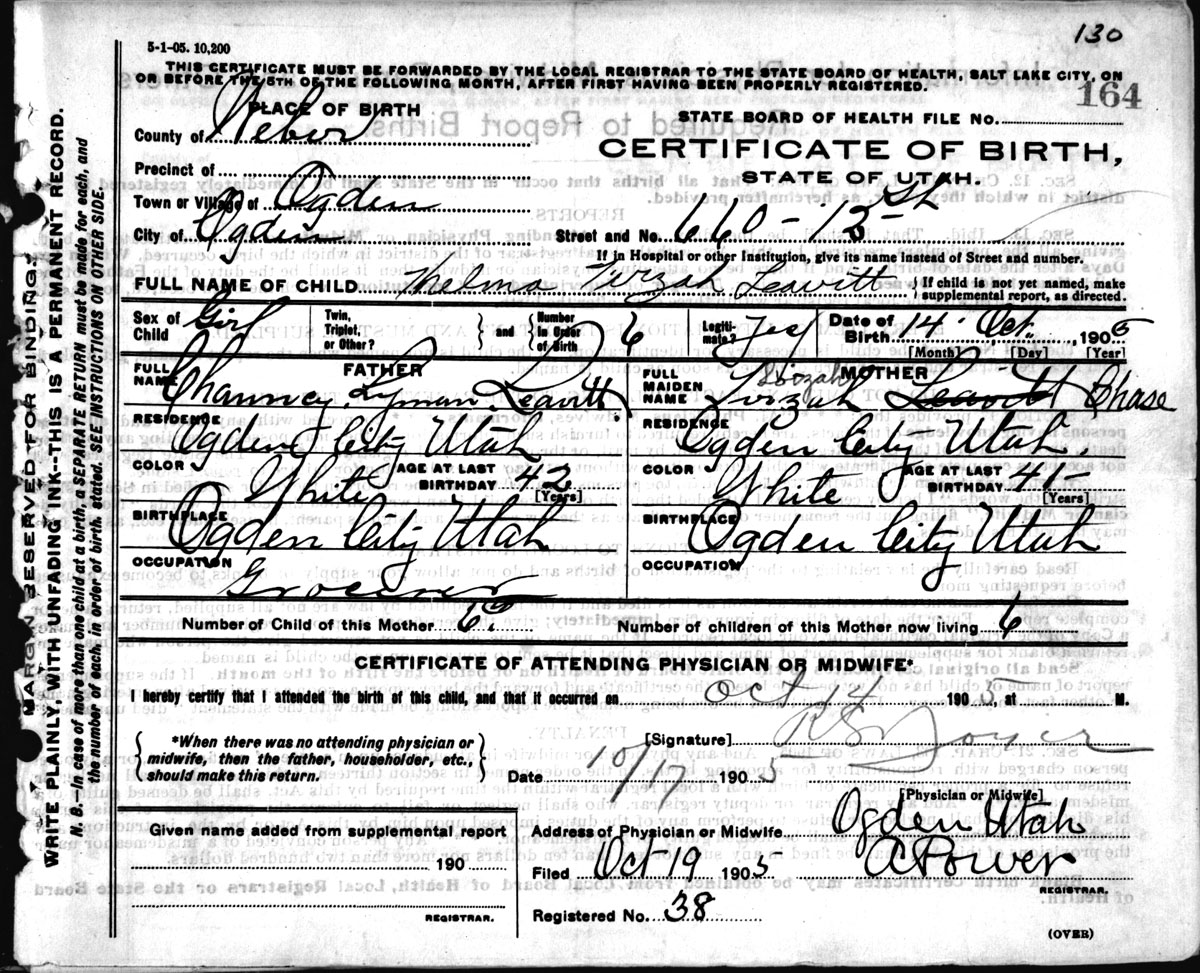 130
5-1-05. 10,200
THIS CERTIFICATE MUST BE FORWARDED BY THE LOCAL REGISTRAR TO THE STATE BOARD OF HEALTH, SALT LAKE CITY, ON
OR BEFORE THE 5TH OF THE FOLLOWING MONTH, AFTER FIRST HAVING BEEN PROPERLY REGISTERED.
164
PLACE OF BIRTH
STATE BOARD OF HEALTH FILE No.
County of Weber
CERTIFICATE OF BIRTH,
STATE OF UTAH.
Precinct of
Town or Village of Ogden
City of Ogden Street and No. 660 - 13th
If in Hospital or other Institution, give its name instead of Street and number.
FULL NAME OF CHILD Thelma Tirzah Leavitt { If child is not yet named, make supplemental report, as directed.
Sex of Child Girl Twin, Triplet, or Other? } and { Number in Order of Birth } 6 Legitimate? Yes Date of Birth 14 Oct. 1905
[Month] [Day] [Year]
FATHER MOTHER
FULL NAME Chauncy Lyman Leavitt FULL MAIDEN NAME Tirzah Leavitt Chase
RESIDENCE Ogden City Utah RESIDENCE Ogden City Utah.
COLOR White AGE AT LAST BIRTHDAY 42 [Years] COLOR White AGE AT LAST BIRTHDAY 41 [Years]
BIRTHPLACE Ogden City Utah BIRTHPLACE Ogden City Utah
OCCUPATION Grocer OCCUPATION
Number of Child of this Mother 6 Number of children of this Mother now living 6
CERTIFICATE OF ATTENDING PHYSICIAN OR MIDWIFE*
I hereby certify that I attended the birth of this child, and that it occurred on Oct 14 1905 at M.
{ *When there was no attending physician or midwife, then the father, householder, etc., should make this return. }
[Signature] R S Joyce
Date 10/17 1905
[Physician or Midwife]
Given name added from supplemental report
190
REGISTRAR.
Address of Physician or Midwife Ogden Utah
Filed Oct 19 1905 A Power
REGISTRAR.
Registered No. 38
(OVER)
MARGIN RESERVED FOR BINDING.
WRITE PLAINLY, WITH UNFADING INK---THIS IS A PERMANENT RECORD.
N. B.—In case of more than one child at a birth, a SEPARATE RETURN must be made for each, and
the number of each, in order of birth, stated. SEE INSTRUCTIONS ON OTHER SIDE.